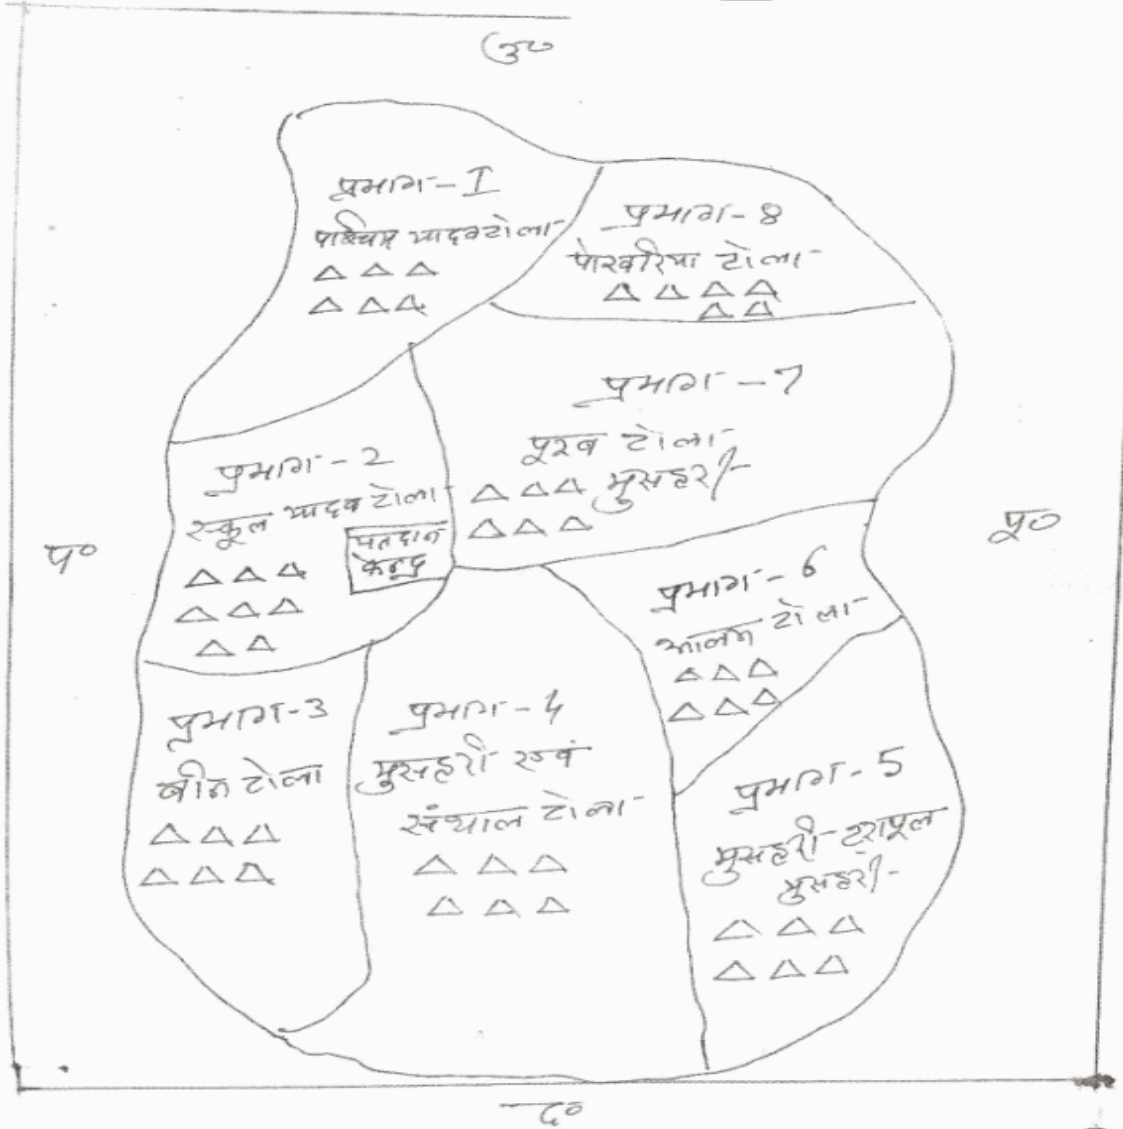 उ०
प्रभाग - I
पश्चिम यादव टोला
प्रभाग - 8
पोखरिया टोला
प्रभाग - 7
पूरब टोला
मुसहरी
प्रभाग - 2
स्कूल यादव टोला
मतदान
केन्द्र
प०
पू०
प्रभाग - 6
आलम टोला
प्रभाग - 3
बीन टोला
प्रभाग - 4
मुसहरी एवं
संथाल टोला
प्रभाग - 5
मुसहरी
मुसहरी
द०